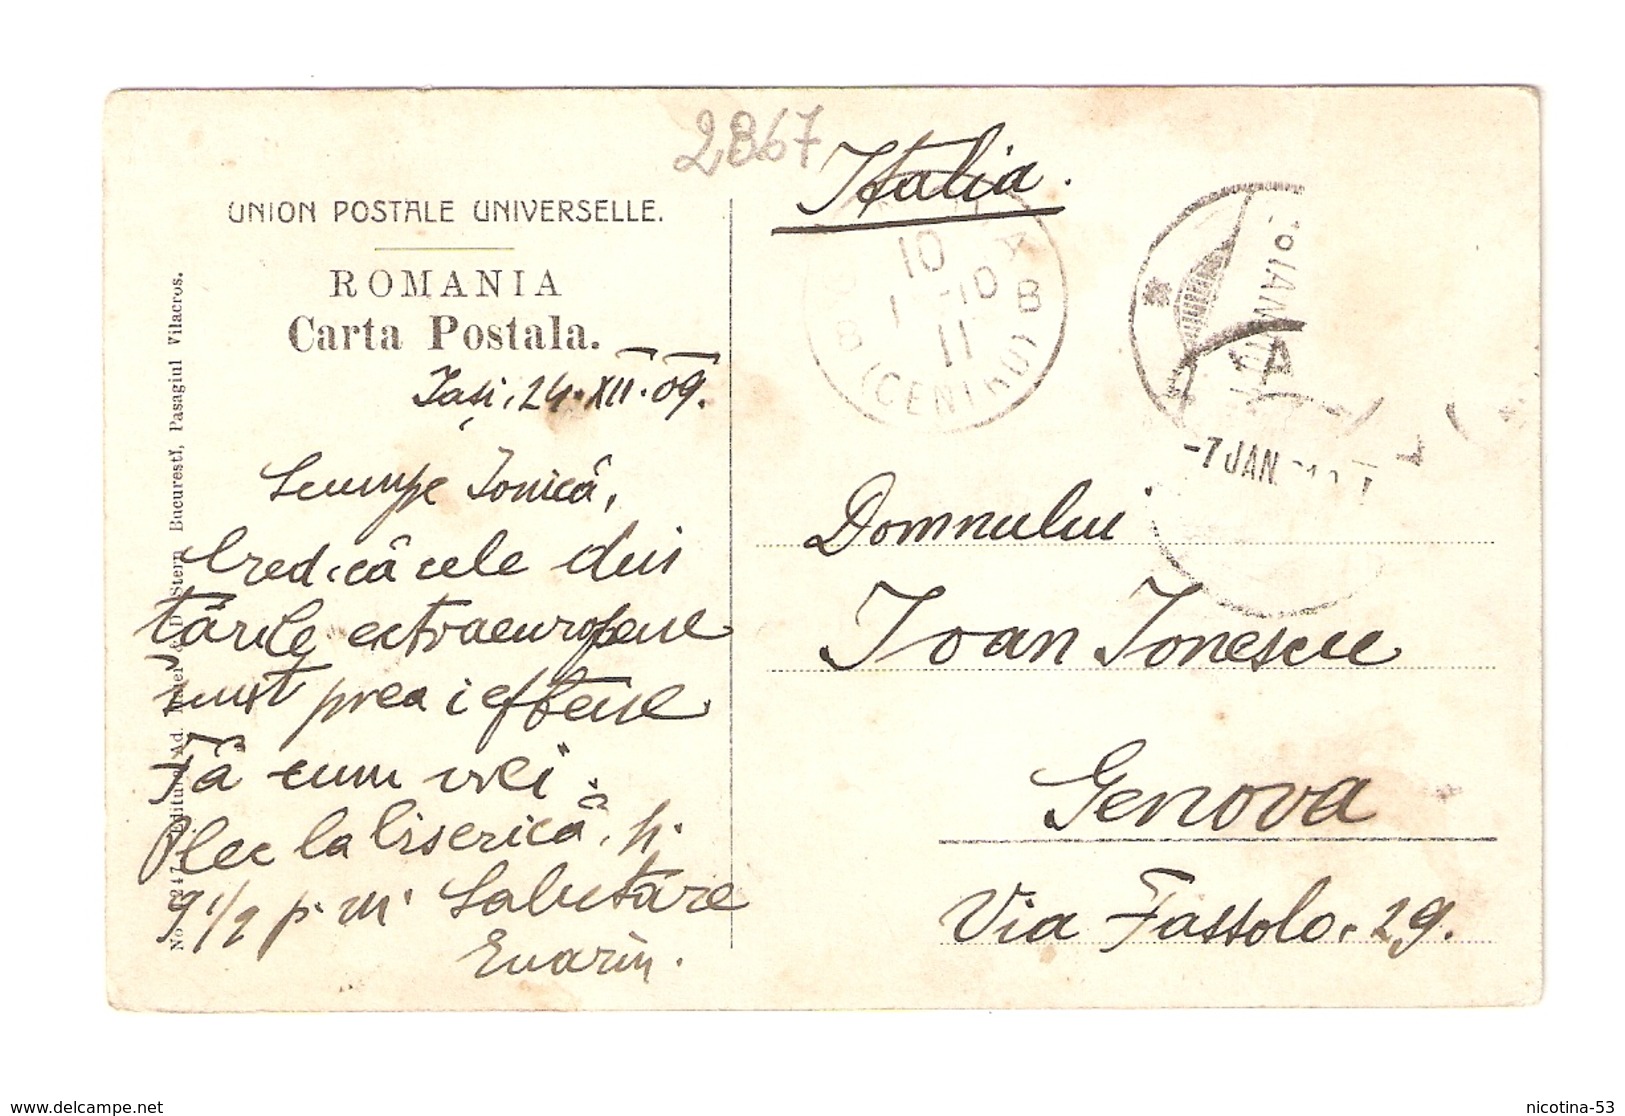 2867
Italia.
UNION POSTALE UNIVERSELLE.
ROMANIA
Carta Postala.
Iași, 24.XII.09.
Scumpe Ionică,
Cred că cele din
țările extraeuropene
sunt prea ieftene
Fă cum vrei.
Plec la biserică, h.
9 1/2 p.m. Salutare
No 247 Editura Ad. Maier & D. Stern Bucuresti, Pasagiul Vilacros.
10
1-10
11
B (CENTRO) B
-7 JAN
Domnului
Ioan Ionescu
Genova
Via Fassolo. 29.
nicotina-53
delcampe.net